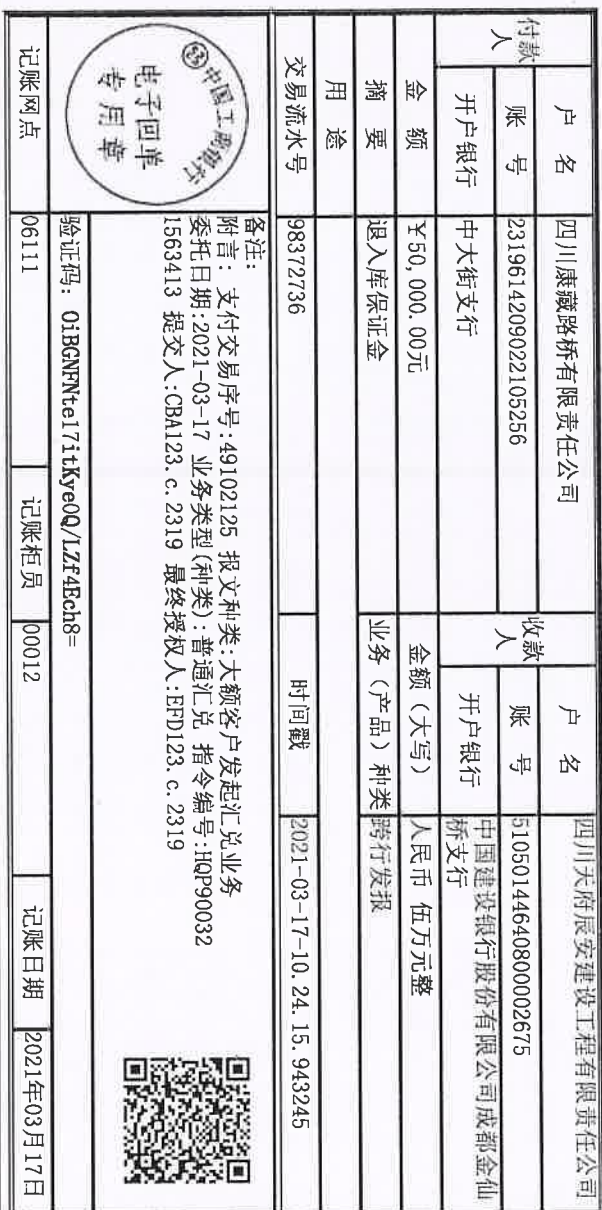 付款人 户 名 四川康藏路桥有限责任公司 收款人 户 名 四川天府辰安建设工程有限责任公司
账 号 2319614209022105256 账 号 51050144640800002675
开户银行 中大街支行 开户银行 中国建设银行股份有限公司成都金仙
桥支行
金 额 ¥50,000.00元 金额（大写） 人民币 伍万元整
摘 要 退入库保证金 业务（产品）种类 跨行发报
用 途
交易流水号 98372736 时间戳 2021-03-17-10.24.15.943245
中国工商银行
电子回单
专用章
备注：
附言：支付交易序号:49102125 报文种类:大额客户发起汇兑业务
委托日期:2021-03-17 业务类型(种类):普通汇兑 指令编号:HQP90032
1563413 提交人:CBA123.c.2319 最终授权人:EFD123.c.2319
验证码：OiBGNFNte17itKye0Q/LZf4Ech8=
记账网点 06111 记账柜员 00012 记账日期 2021年03月17日